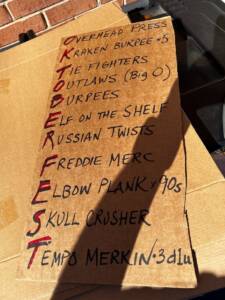 OVERHEAD PRESS
KRAKEN BURPEE • 5
TIE FIGHTERS
OUTLAWS (BIG O)
BURPEES
ELF ON THE SHELF
RUSSIAN TWISTS
FREDDIE MERC
ELBOW PLANK • 90s
SKULL CRUSHER
TEMPO MERKIN • 3d1u